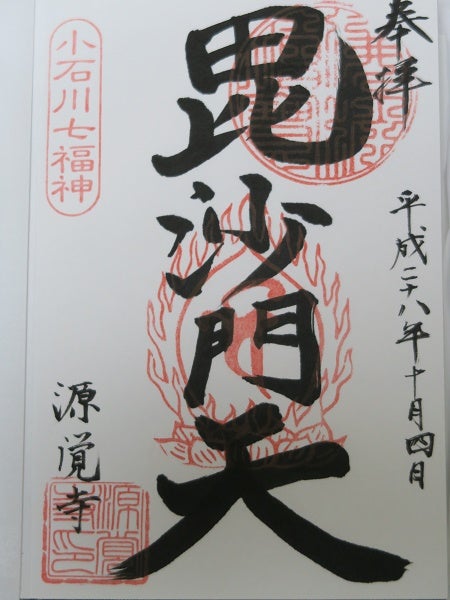 奉拝
平成二十八年十月四日
毘沙門天
小石川七福神
源覚寺
源覚寺印